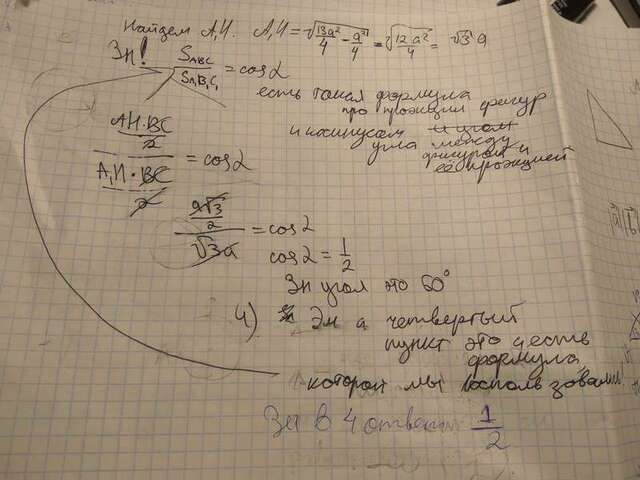 Найдем A₁H. A₁H = √(13a²/4 - a²/4) = √(12a²/4) = √3 a
Зн! S_ABC / S_A₁B₁C₁ = cos α
есть такая формула
про проэкции фигур
и косинусам
угла между
фигурой и
её проэкцией
(AH·BC/2) / (A₁H·BC/2) = cos α
(a√3/2) / (√3a) = cos α
cos α = 1/2
Зн угол это 60°
4) Эм а четвертый
пункт это и есть
формула,
которой мы воспользовались
в 4 ответ 1/2